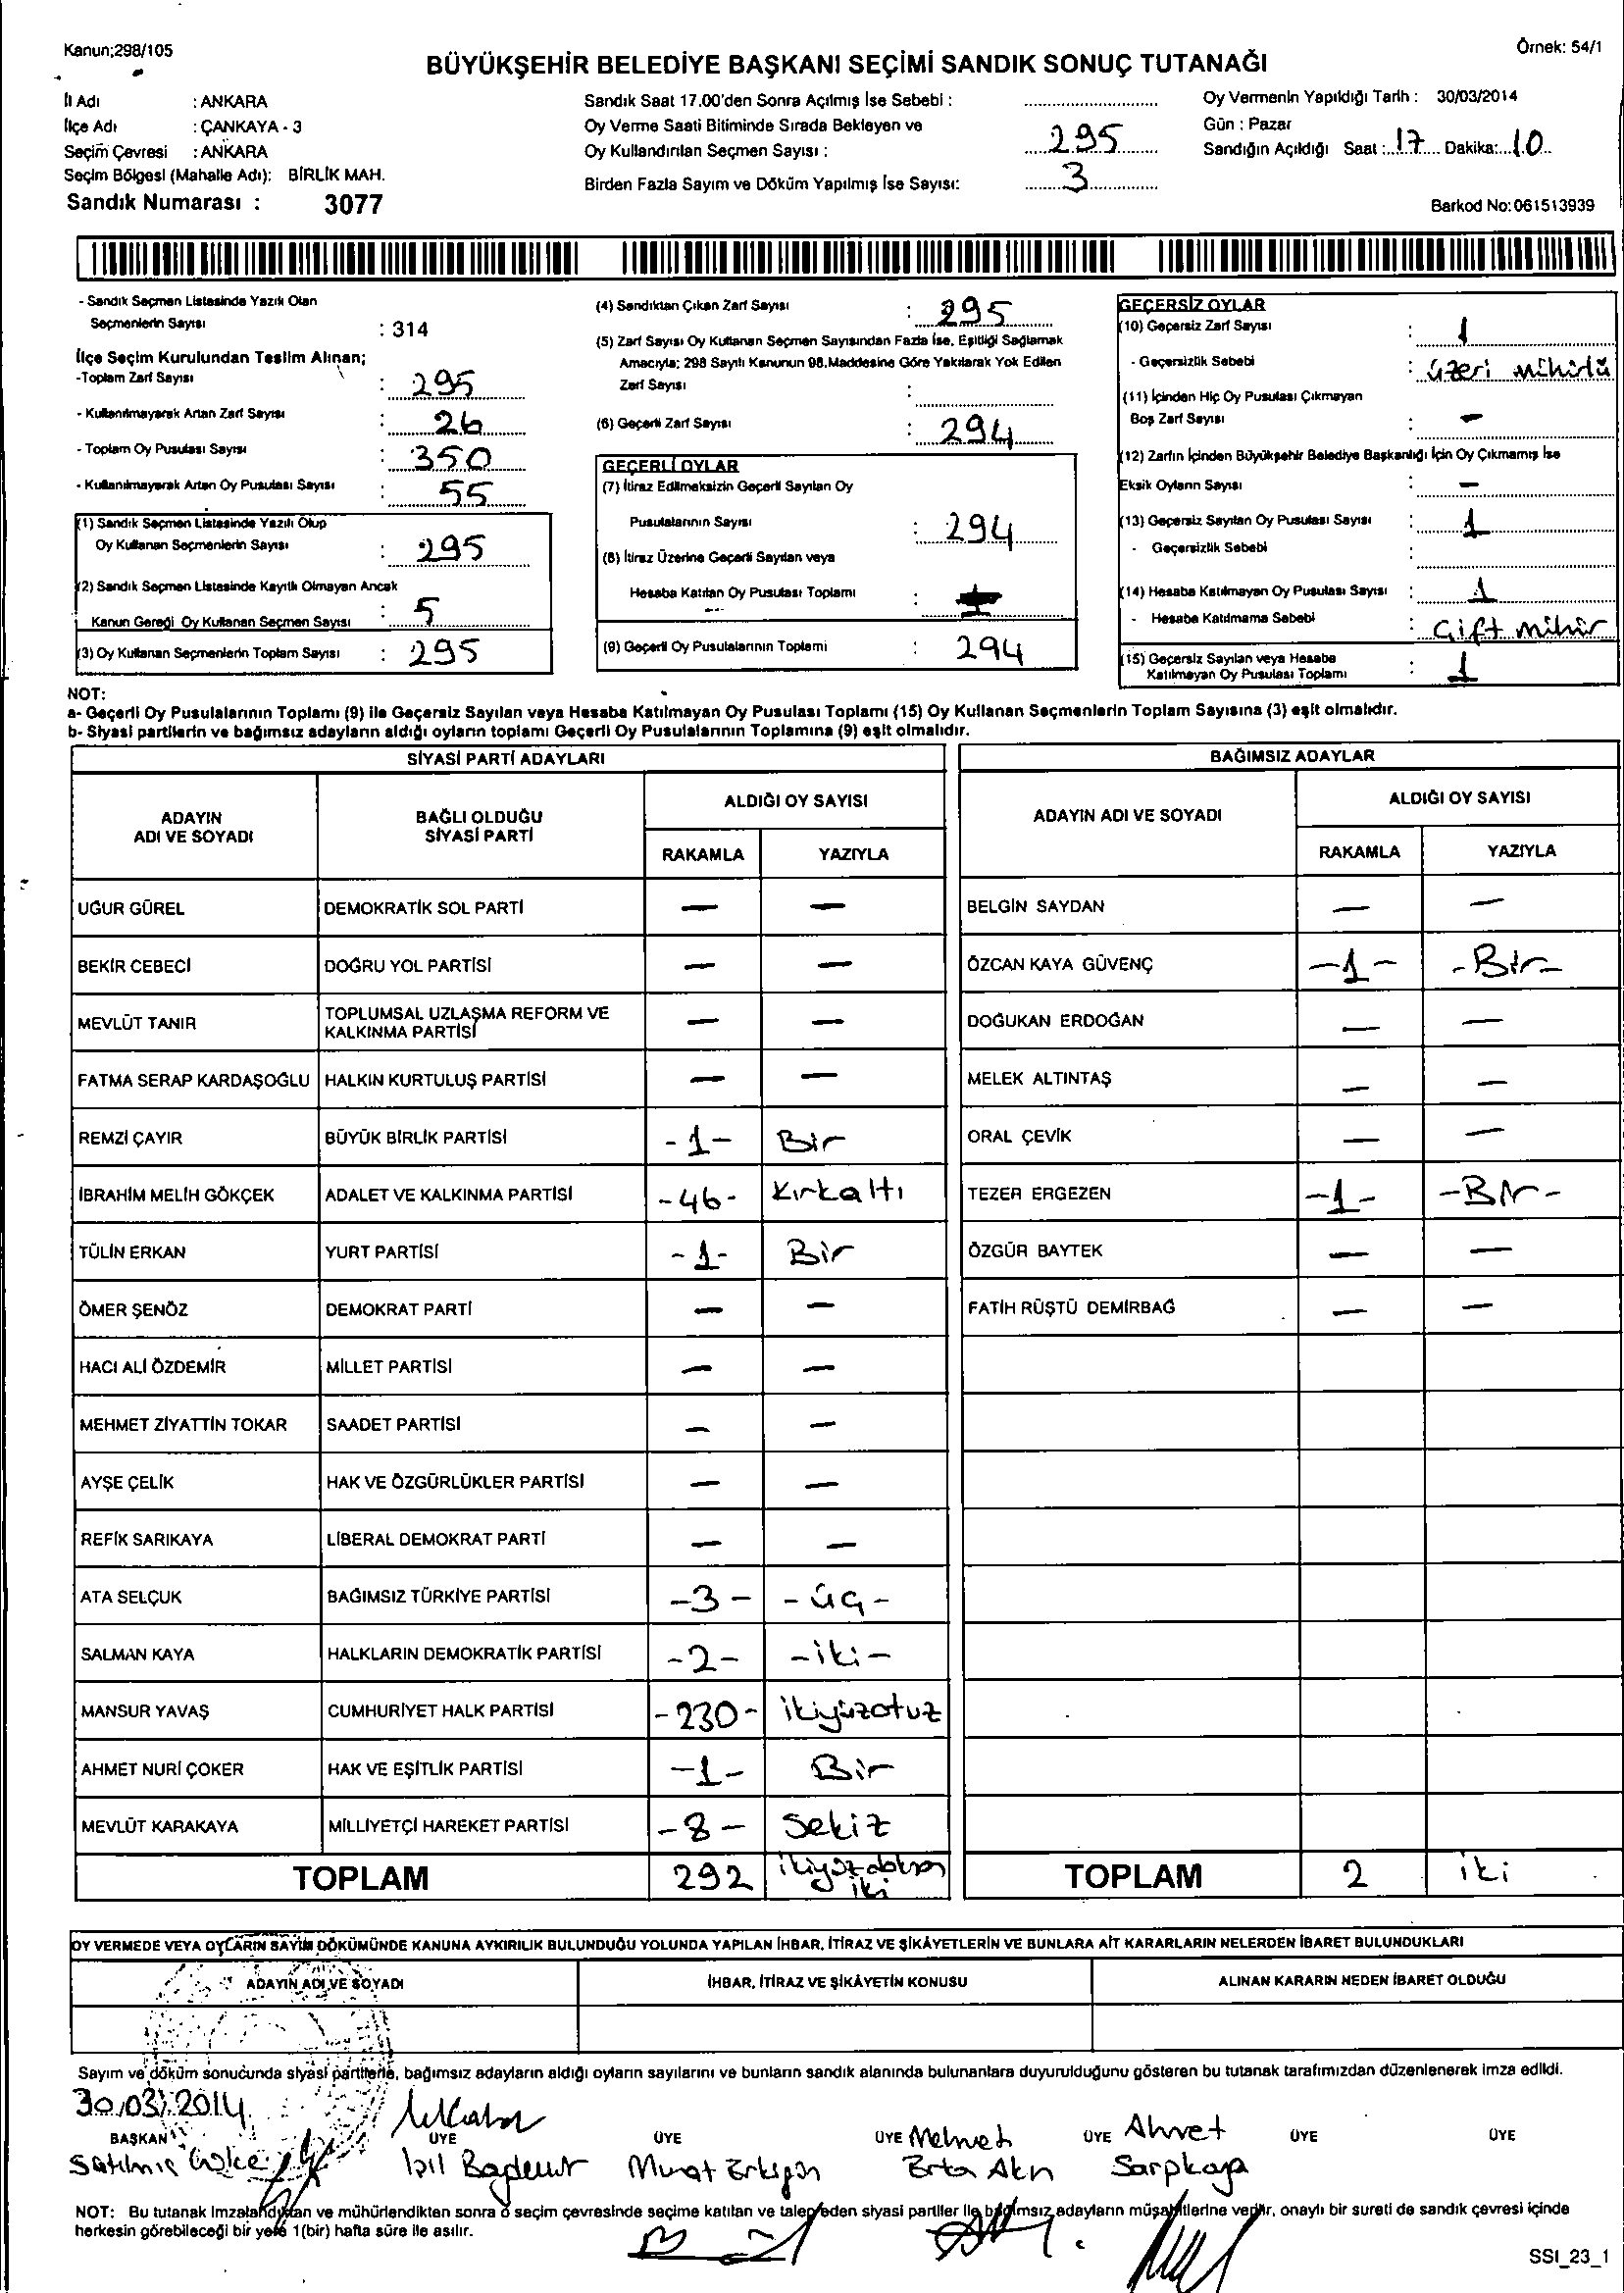 Kanun;298/105
Örnek: 54/1
BÜYÜKŞEHİR BELEDİYE BAŞKANI SEÇİMİ SANDIK SONUÇ TUTANAĞI
İl Adı : ANKARA
İlçe Adı : ÇANKAYA - 3
Seçim Çevresi : ANKARA
Seçim Bölgesi (Mahalle Adı): BİRLİK MAH.
Sandık Numarası : 3077
Sandık Saat 17.00'den Sonra Açılmış İse Sebebi :
Oy Verme Saati Bitiminde Sırada Bekleyen ve
Oy Kullandırılan Seçmen Sayısı : 295
Birden Fazla Sayım ve Döküm Yapılmış İse Sayısı: 3
Oy Vermenin Yapıldığı Tarih : 30/03/2014
Gün : Pazar
Sandığın Açıldığı Saat : 17 Dakika: 10
Barkod No: 061513939
- Sandık Seçmen Listesinde Yazılı Olan
Seçmenlerin Sayısı : 314
İlçe Seçim Kurulundan Teslim Alınan;
-Toplam Zarf Sayısı : 295
- Kullanılmayarak Artan Zarf Sayısı : 26
- Toplam Oy Pusulası Sayısı : 350
- Kullanılmayarak Artan Oy Pusulası Sayısı : 55
(1) Sandık Seçmen Listesinde Yazılı Olup
Oy Kullanan Seçmenlerin Sayısı : 295
(2) Sandık Seçmen Listesinde Kayıtlı Olmayan Ancak
Kanun Gereği Oy Kullanan Seçmen Sayısı : 5
(3) Oy Kullanan Seçmenlerin Toplam Sayısı : 295
(4) Sandıktan Çıkan Zarf Sayısı : 295
(5) Zarf Sayısı Oy Kullanan Seçmen Sayısından Fazla İse, Eşitliği Sağlamak
Amacıyla; 298 Sayılı Kanunun 98.Maddesine Göre Yakılarak Yok Edilen
Zarf Sayısı :
(6) Geçerli Zarf Sayısı : 294
GEÇERLİ OYLAR
(7) İtiraz Edilmeksizin Geçerli Sayılan Oy
Pusulalarının Sayısı : 294
(8) İtiraz Üzerine Geçerli Sayılan veya
Hesaba Katılan Oy Pusulası Toplamı :
(9) Geçerli Oy Pusulalarının Toplamı : 294
GEÇERSİZ OYLAR
(10) Geçersiz Zarf Sayısı : 1
- Geçersizlik Sebebi : üzeri mühürlü
(11) İçinden Hiç Oy Pusulası Çıkmayan
Boş Zarf Sayısı : -
(12) Zarfın İçinden Büyükşehir Belediye Başkanlığı İçin Oy Çıkmamış İse
Eksik Oyların Sayısı : -
(13) Geçersiz Sayılan Oy Pusulası Sayısı : 1
- Geçersizlik Sebebi :
(14) Hesaba Katılmayan Oy Pusulası Sayısı : 1
- Hesaba Katılmama Sebebi : Çift mühür
(15) Geçersiz Sayılan veya Hesaba
Katılmayan Oy Pusulası Toplamı : 1
NOT:
a- Geçerli Oy Pusulalarının Toplamı (9) ile Geçersiz Sayılan veya Hesaba Katılmayan Oy Pusulası Toplamı (15) Oy Kullanan Seçmenlerin Toplam Sayısına (3) eşit olmalıdır.
b- Siyasi partilerin ve bağımsız adayların aldığı oyların toplamı Geçerli Oy Pusulalarının Toplamına (9) eşit olmalıdır.
SİYASİ PARTİ ADAYLARI
ADAYIN ADI VE SOYADI
BAĞLI OLDUĞU SİYASİ PARTİ
ALDIĞI OY SAYISI
RAKAMLA YAZIYLA
UĞUR GÜREL DEMOKRATİK SOL PARTİ — —
BEKİR CEBECİ DOĞRU YOL PARTİSİ — —
MEVLÜT TANIR TOPLUMSAL UZLAŞMA REFORM VE KALKINMA PARTİSİ — —
FATMA SERAP KARDAŞOĞLU HALKIN KURTULUŞ PARTİSİ — —
REMZİ ÇAYIR BÜYÜK BİRLİK PARTİSİ -1- Bir
İBRAHİM MELİH GÖKÇEK ADALET VE KALKINMA PARTİSİ -46- Kırkaltı
TÜLİN ERKAN YURT PARTİSİ -1- Bir
ÖMER ŞENÖZ DEMOKRAT PARTİ — —
HACI ALİ ÖZDEMİR MİLLET PARTİSİ — —
MEHMET ZİYATTİN TOKAR SAADET PARTİSİ — —
AYŞE ÇELİK HAK VE ÖZGÜRLÜKLER PARTİSİ — —
REFİK SARIKAYA LİBERAL DEMOKRAT PARTİ — —
ATA SELÇUK BAĞIMSIZ TÜRKİYE PARTİSİ -3- -üç-
SALMAN KAYA HALKLARIN DEMOKRATİK PARTİSİ -2- -iki-
MANSUR YAVAŞ CUMHURİYET HALK PARTİSİ -230- ikiyüzotuz
AHMET NURİ ÇOKER HAK VE EŞİTLİK PARTİSİ -1- Bir
MEVLÜT KARAKAYA MİLLİYETÇİ HAREKET PARTİSİ -8- Sekiz
TOPLAM 292 ikiyüzdoksan iki
BAĞIMSIZ ADAYLAR
ADAYIN ADI VE SOYADI
ALDIĞI OY SAYISI
RAKAMLA YAZIYLA
BELGİN SAYDAN — —
ÖZCAN KAYA GÜVENÇ -1- -Bir-
DOĞUKAN ERDOĞAN — —
MELEK ALTINTAŞ — —
ORAL ÇEVİK — —
TEZER ERGEZEN -1- -Bir-
ÖZGÜR BAYTEK — —
FATİH RÜŞTÜ DEMİRBAĞ — —
TOPLAM 2 iki
OY VERMEDE VEYA OYLARIN SAYIM DÖKÜMÜNDE KANUNA AYKIRILIK BULUNDUĞU YOLUNDA YAPILAN İHBAR, İTİRAZ VE ŞİKÂYETLERİN VE BUNLARA AİT KARARLARIN NELERDEN İBARET BULUNDUKLARI
ADAYIN ADI VE SOYADI
İHBAR, İTİRAZ VE ŞİKÂYETİN KONUSU
ALINAN KARARIN NEDEN İBARET OLDUĞU
Sayım ve döküm sonucunda siyasi partilerle, bağımsız adayların aldığı oyların sayılarını ve bunların sandık alanında bulunanlara duyurulduğunu gösteren bu tutanak tarafımızdan düzenlenerek imza edildi.
30.03.2014
BAŞKAN ÜYE ÜYE ÜYE Mehmet ÜYE Ahmet ÜYE ÜYE
Satılmış Murat Akın Sarpkaya
NOT: Bu tutanak imzalandıktan ve mühürlendikten sonra o seçim çevresinde seçime katılan ve talep eden siyasi partiler ile bağımsız adayların müşahitlerine verilir, onaylı bir sureti de sandık çevresi içinde
herkesin görebileceği bir yere 1(bir) hafta süre ile asılır.
SSI_23_1